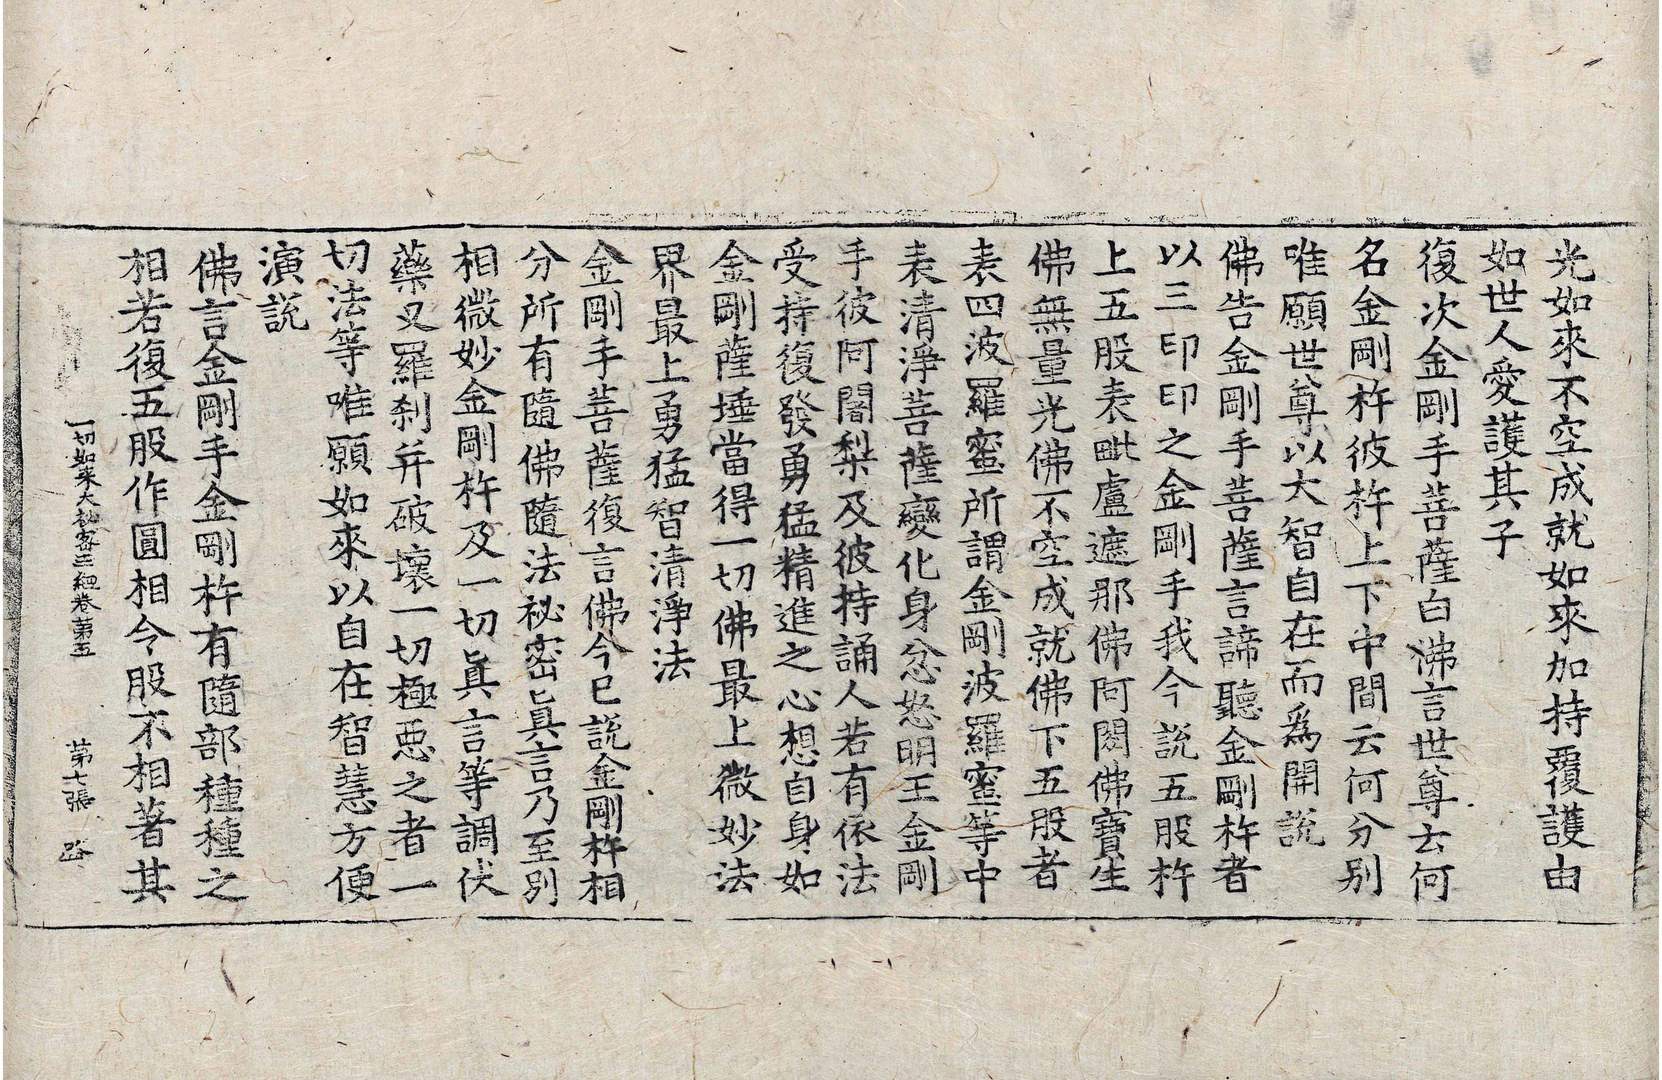 光如來不空成就如來加持覆護由
如世人愛護其子
復次金剛手菩薩白佛言世尊云何
名金剛杵彼杵上下中間云何分別
唯願世尊以大智自在而爲開說
佛告金剛手菩薩言諦聽金剛杵者
以三印印之金剛手我今說五股杵
上五股表毗盧遮那佛阿閦佛寶生
佛無量光佛不空成就佛下五股者
表四波羅蜜所謂金剛波羅蜜等中
表清淨菩薩變化身忿怒明王金剛
手彼阿闍梨及彼持誦人若有依法
受持復發勇猛精進之心想自身如
金剛薩埵當得一切佛最上微妙法
界最上勇猛智清淨法
金剛手菩薩復言佛今已說金剛杵相
分所有隨佛隨法祕密眞言乃至別
相微妙金剛杵及一切眞言等調伏
藥叉羅刹并破壞一切極惡之者一
切法等唯願如來以自在智慧方便
演說
佛言金剛手金剛杵有隨部種種之
相若復五股作圓相令股不相著其
一切如來大秘密王經卷第五 第七張 路